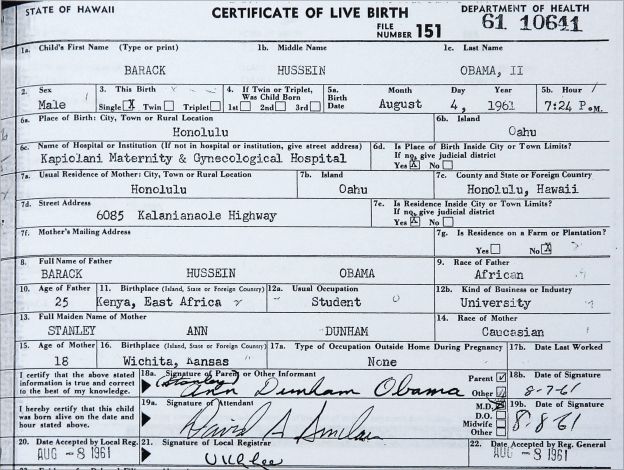 STATE OF HAWAII CERTIFICATE OF LIVE BIRTH DEPARTMENT OF HEALTH
FILE NUMBER 151 61 10641
1a. Child's First Name (Type or print) 1b. Middle Name 1c. Last Name
BARACK HUSSEIN OBAMA, II
2. Sex 3. This Birth 4. If Twin or Triplet, Was Child Born 5a. Birth Date Month Day Year 5b. Hour
Male Single X Twin Triplet 1st 2nd 3rd August 4, 1961 7:24 P.M.
6a. Place of Birth: City, Town or Rural Location 6b. Island
Honolulu Oahu
6c. Name of Hospital or Institution (If not in hospital or institution, give street address) 6d. Is Place of Birth Inside City or Town Limits? If no, give judicial district
Kapiolani Maternity & Gynecological Hospital Yes X No
7a. Usual Residence of Mother: City, Town or Rural Location 7b. Island 7c. County and State or Foreign Country
Honolulu Oahu Honolulu, Hawaii
7d. Street Address 7e. Is Residence Inside City or Town Limits? If no, give judicial district
6085 Kalanianaole Highway Yes X No
7f. Mother's Mailing Address 7g. Is Residence on a Farm or Plantation?
Yes No X
8. Full Name of Father 9. Race of Father
BARACK HUSSEIN OBAMA African
10. Age of Father 11. Birthplace (Island, State or Foreign Country) 12a. Usual Occupation 12b. Kind of Business or Industry
25 Kenya, East Africa Student University
13. Full Maiden Name of Mother 14. Race of Mother
STANLEY ANN DUNHAM Caucasian
15. Age of Mother 16. Birthplace (Island, State or Foreign Country) 17a. Type of Occupation Outside Home During Pregnancy 17b. Date Last Worked
18 Wichita, Kansas None
I certify that the above stated information is true and correct to the best of my knowledge. 18a. Signature of Parent or Other Informant Parent Other 18b. Date of Signature
(Stanley) Ann Dunham Obama 8-7-61
I hereby certify that this child was born alive on the date and hour stated above. 19a. Signature of Attendant M.D. D.O. Midwife Other 19b. Date of Signature
David A Sinclair 8-8-61
20. Date Accepted by Local Reg. 21. Signature of Local Registrar 22. Date Accepted by Reg. General
AUG -8 1961 U K L Lee AUG -8 1961